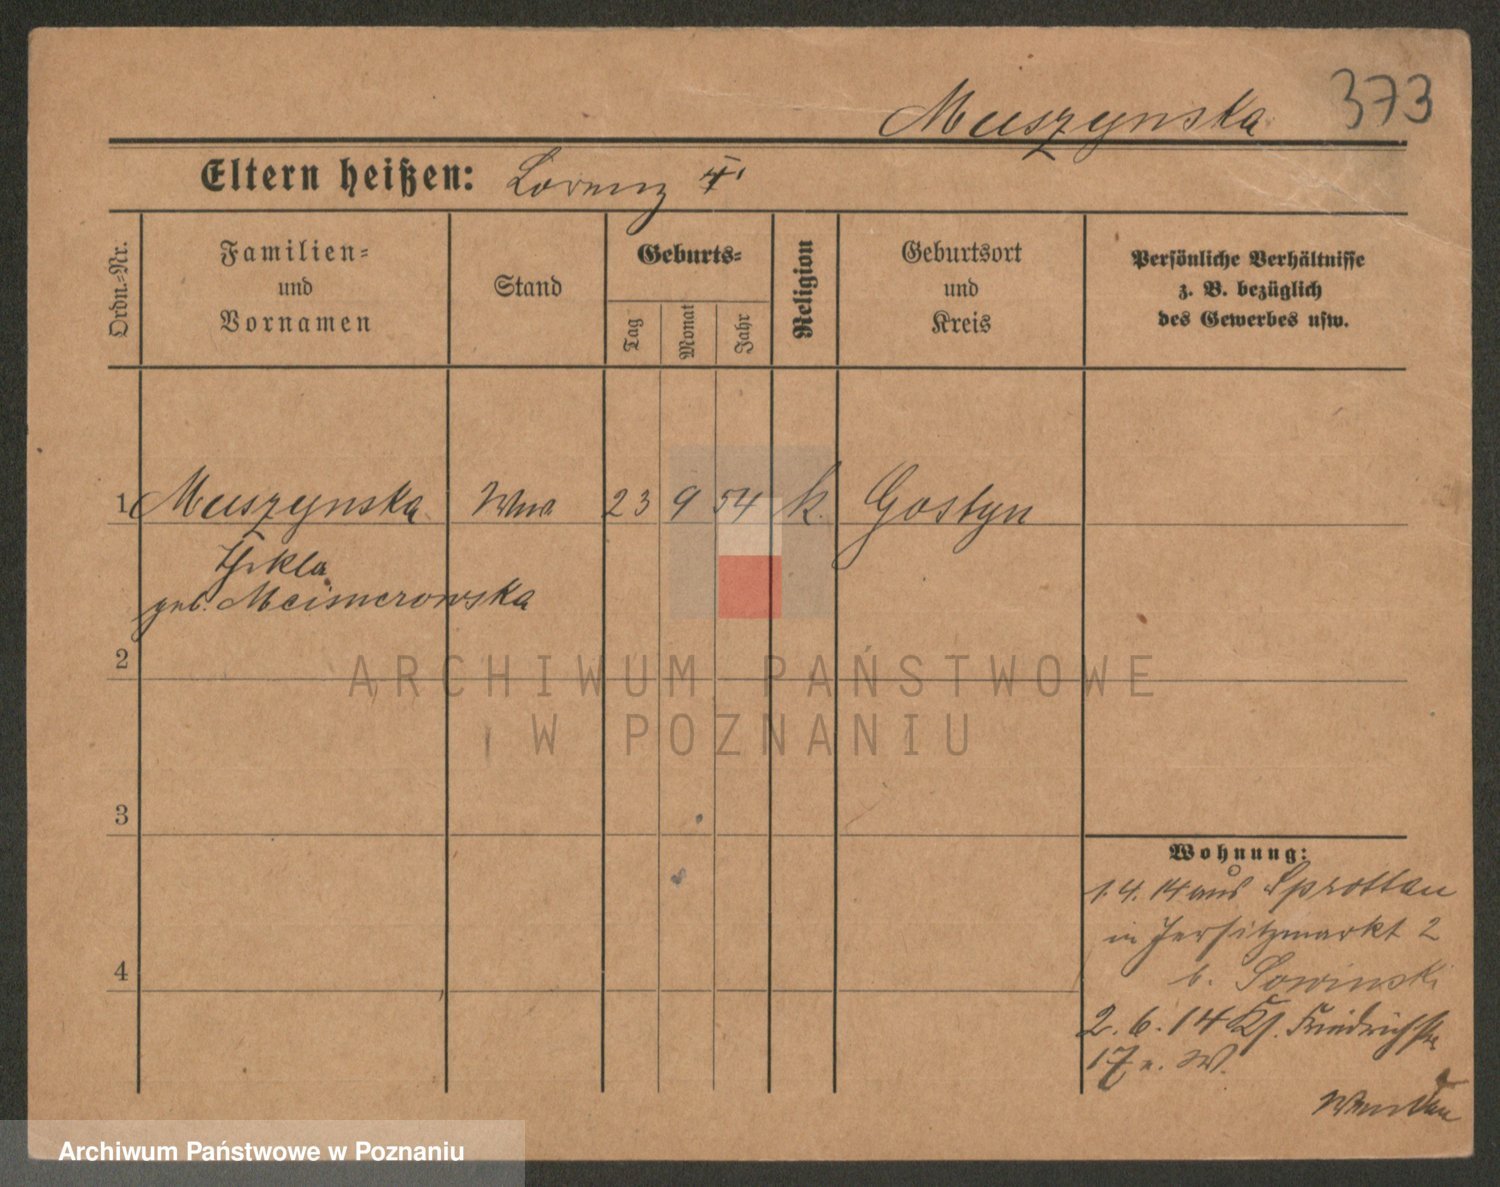 Muszynska 373
Eltern heißen: Lorenz
Ordn.-Nr.
Familien-
und
Vornamen
Stand
Geburts-
Tag
Monat
Jahr
Religion
Geburtsort
und
Kreis
Persönliche Verhältnisse
z. B. bezüglich
des Gewerbes usw.
1 Muszynska Wwe 23 9 54 k. Gostyn
Thekla
geb.
2
ARCHIWUM PAŃSTWOWE
W POZNANIU
3
4
Wohnung:
1.4.14 aus Sprottau
in Jersitzmarkt 2
b. Sowinski
2.6.14 Friedrichstr
17
Archiwum Państwowe w Poznaniu